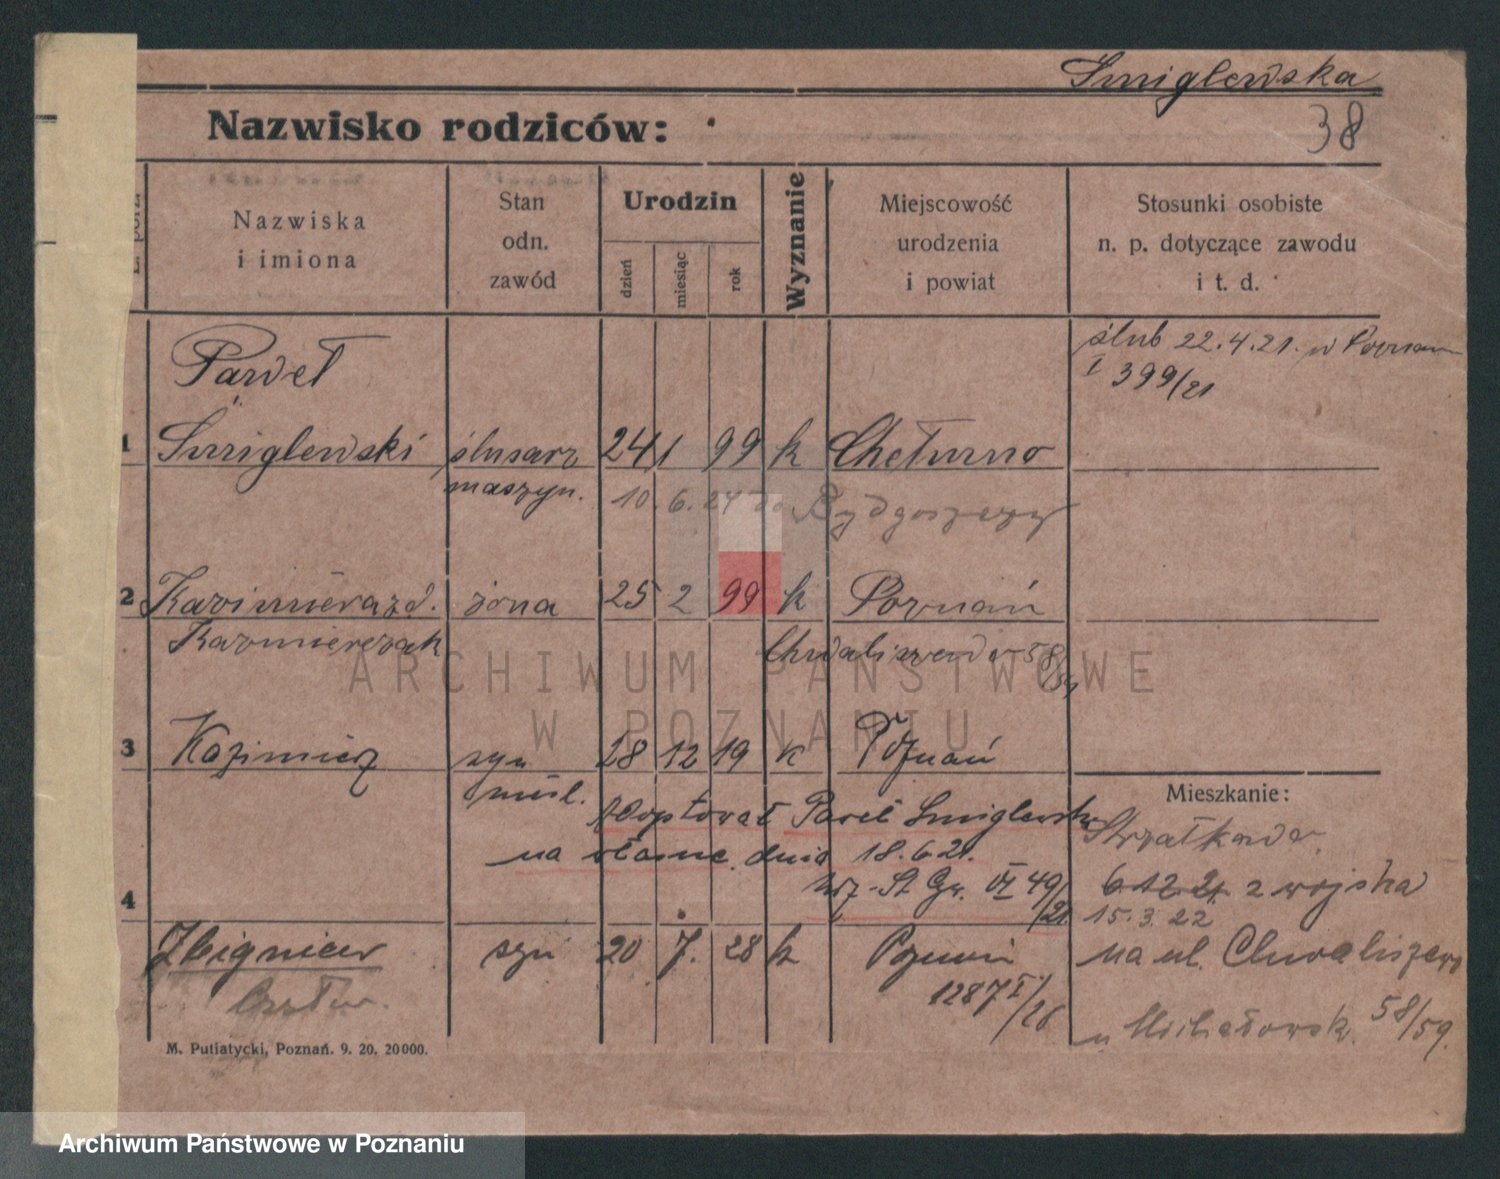 Śmiglewska
38
Nazwisko rodziców:
L. porz.
Nazwiska
i imiona
Stan
odn.
zawód
Urodzin
dzień
miesiąc
rok
Wyznanie
Miejscowość
urodzenia
i powiat
Stosunki osobiste
n. p. dotyczące zawodu
i t. d.
ślub 22.4.21. w Poznaniu
I 399/21
Paweł
1 Śmiglewski ślusarz 24 1 99 k Chełmno
maszyn. 10. 6. 24 do Bydgoszczy
2 Kazimiera z d. żona 25 2 99 k Poznań
Kazmierczak Chwaliszewo 58/59
ARCHIWUM PAŃSTWOWE
W POZNANIU
3 Kazimierz syn 28 12 19 k Poznań
nieśl.
Mieszkanie:
Adoptował Paweł Śmiglewski
na własne dnia 18.6.21.
St. Gr. VI 49/21
Strzałkowa
6.12.21. z wojska
15.3.22
na ul. Chwaliszewo
58/59.
4
Zbigniew syn 20 7. 28 k Poznań
1287 I/28
M. Putiatycki, Poznań. 9. 20. 20000.
Archiwum Państwowe w Poznaniu